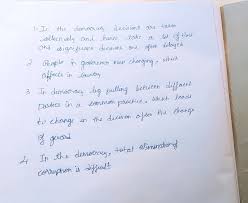 1. In the democracy decisions are taken
collectively and hence take a lot of time
and significant decisions are often delayed
2 People in governance keep changing, which
affects in
3 In democracy leg pulling between different
parties is a common practice, which leads
to change in the decision after the change
of govern
4. In the democracy, total elimination of
corruption is difficult